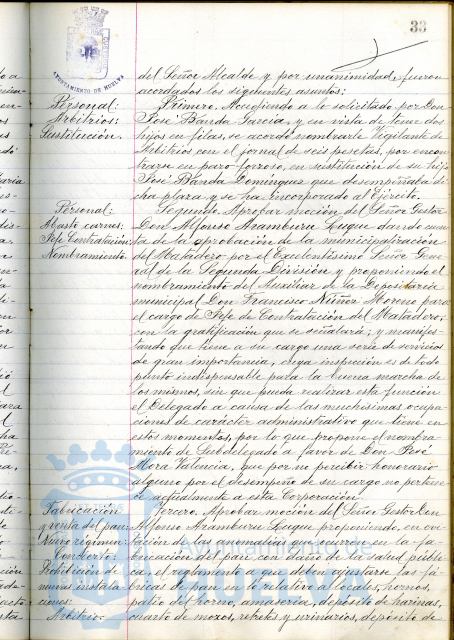 33
AYUNTAMIENTO DE HUELVA
del Señor Alcalde y por unanimidad, fueron
acordados los siguientes asuntos:
Personal: Primero. Accediendo a lo solicitado por Don
Arbitrios: José Banda García, y en vista de tener dos
Sustitución. hijos en filas, se acordó nombrarle Vigilante de
Arbitrios con el jornal de seis pesetas, por encon
trarse en paro forzoso, en sustitución de su hijo
José Banda Domínguez que desempeñaba di
cha plaza y se ha incorporado al Ejército.
Personal: Segundo. Aprobar moción del Señor Gestor
Abasto carnes: Don Alfonso Aramburu Luque dando cuen
Jefe Contratación: ta de la aprobación de la municipalización
Nombramiento. del Matadero por el Excelentísimo Señor Gene
ral de la Segunda División y proponiendo el
nombramiento del Auxiliar de la Depositaría
municipal Don Francisco Núñez Moreno para
el cargo de Jefe de Contratación del Matadero,
con la gratificación que se señalará; y manifes
tando que tiene a su cargo una serie de servicios
de gran importancia, cuya inspección es de todo
punto indispensable para la buena marcha de
los mismos, sin que pueda realizar esta función
el Delegado a causa de las muchísimas ocupa
ciones de carácter administrativo que tiene en
estos momentos, por lo que propone el nombra
miento de Subdelegado a favor de Don José
Mora Valencia, que por no percibir honorario
alguno por el desempeño de su cargo no pertene
ce actualmente a esta Corporación.
Fabricación Tercero. Aprobar moción del Señor Gestor Don
y venta del pan: Alfonso Aramburu Luque proponiendo, en evi
Nuevo régimen: tación de las anomalías que ocurren en la fa
Concierto: bricación del pan con daño de la salud públi
Prohibición de ca, el reglamento a que deben ajustarse las fá
nuevas instala bricas de pan en lo relativo a locales, hornos,
ciones: patio del horno, amasería, depósito de harinas,
Arbitrio. cuarto de mozos, retretes y urinarios, depósito de
Ayuntamiento de
HUELVA